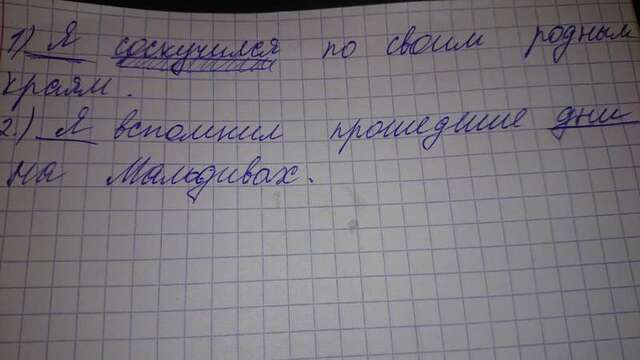 1) Я соскучился по своим родным
краям.
2.) Я вспомнил прошедшие дни
на Мальдивах.